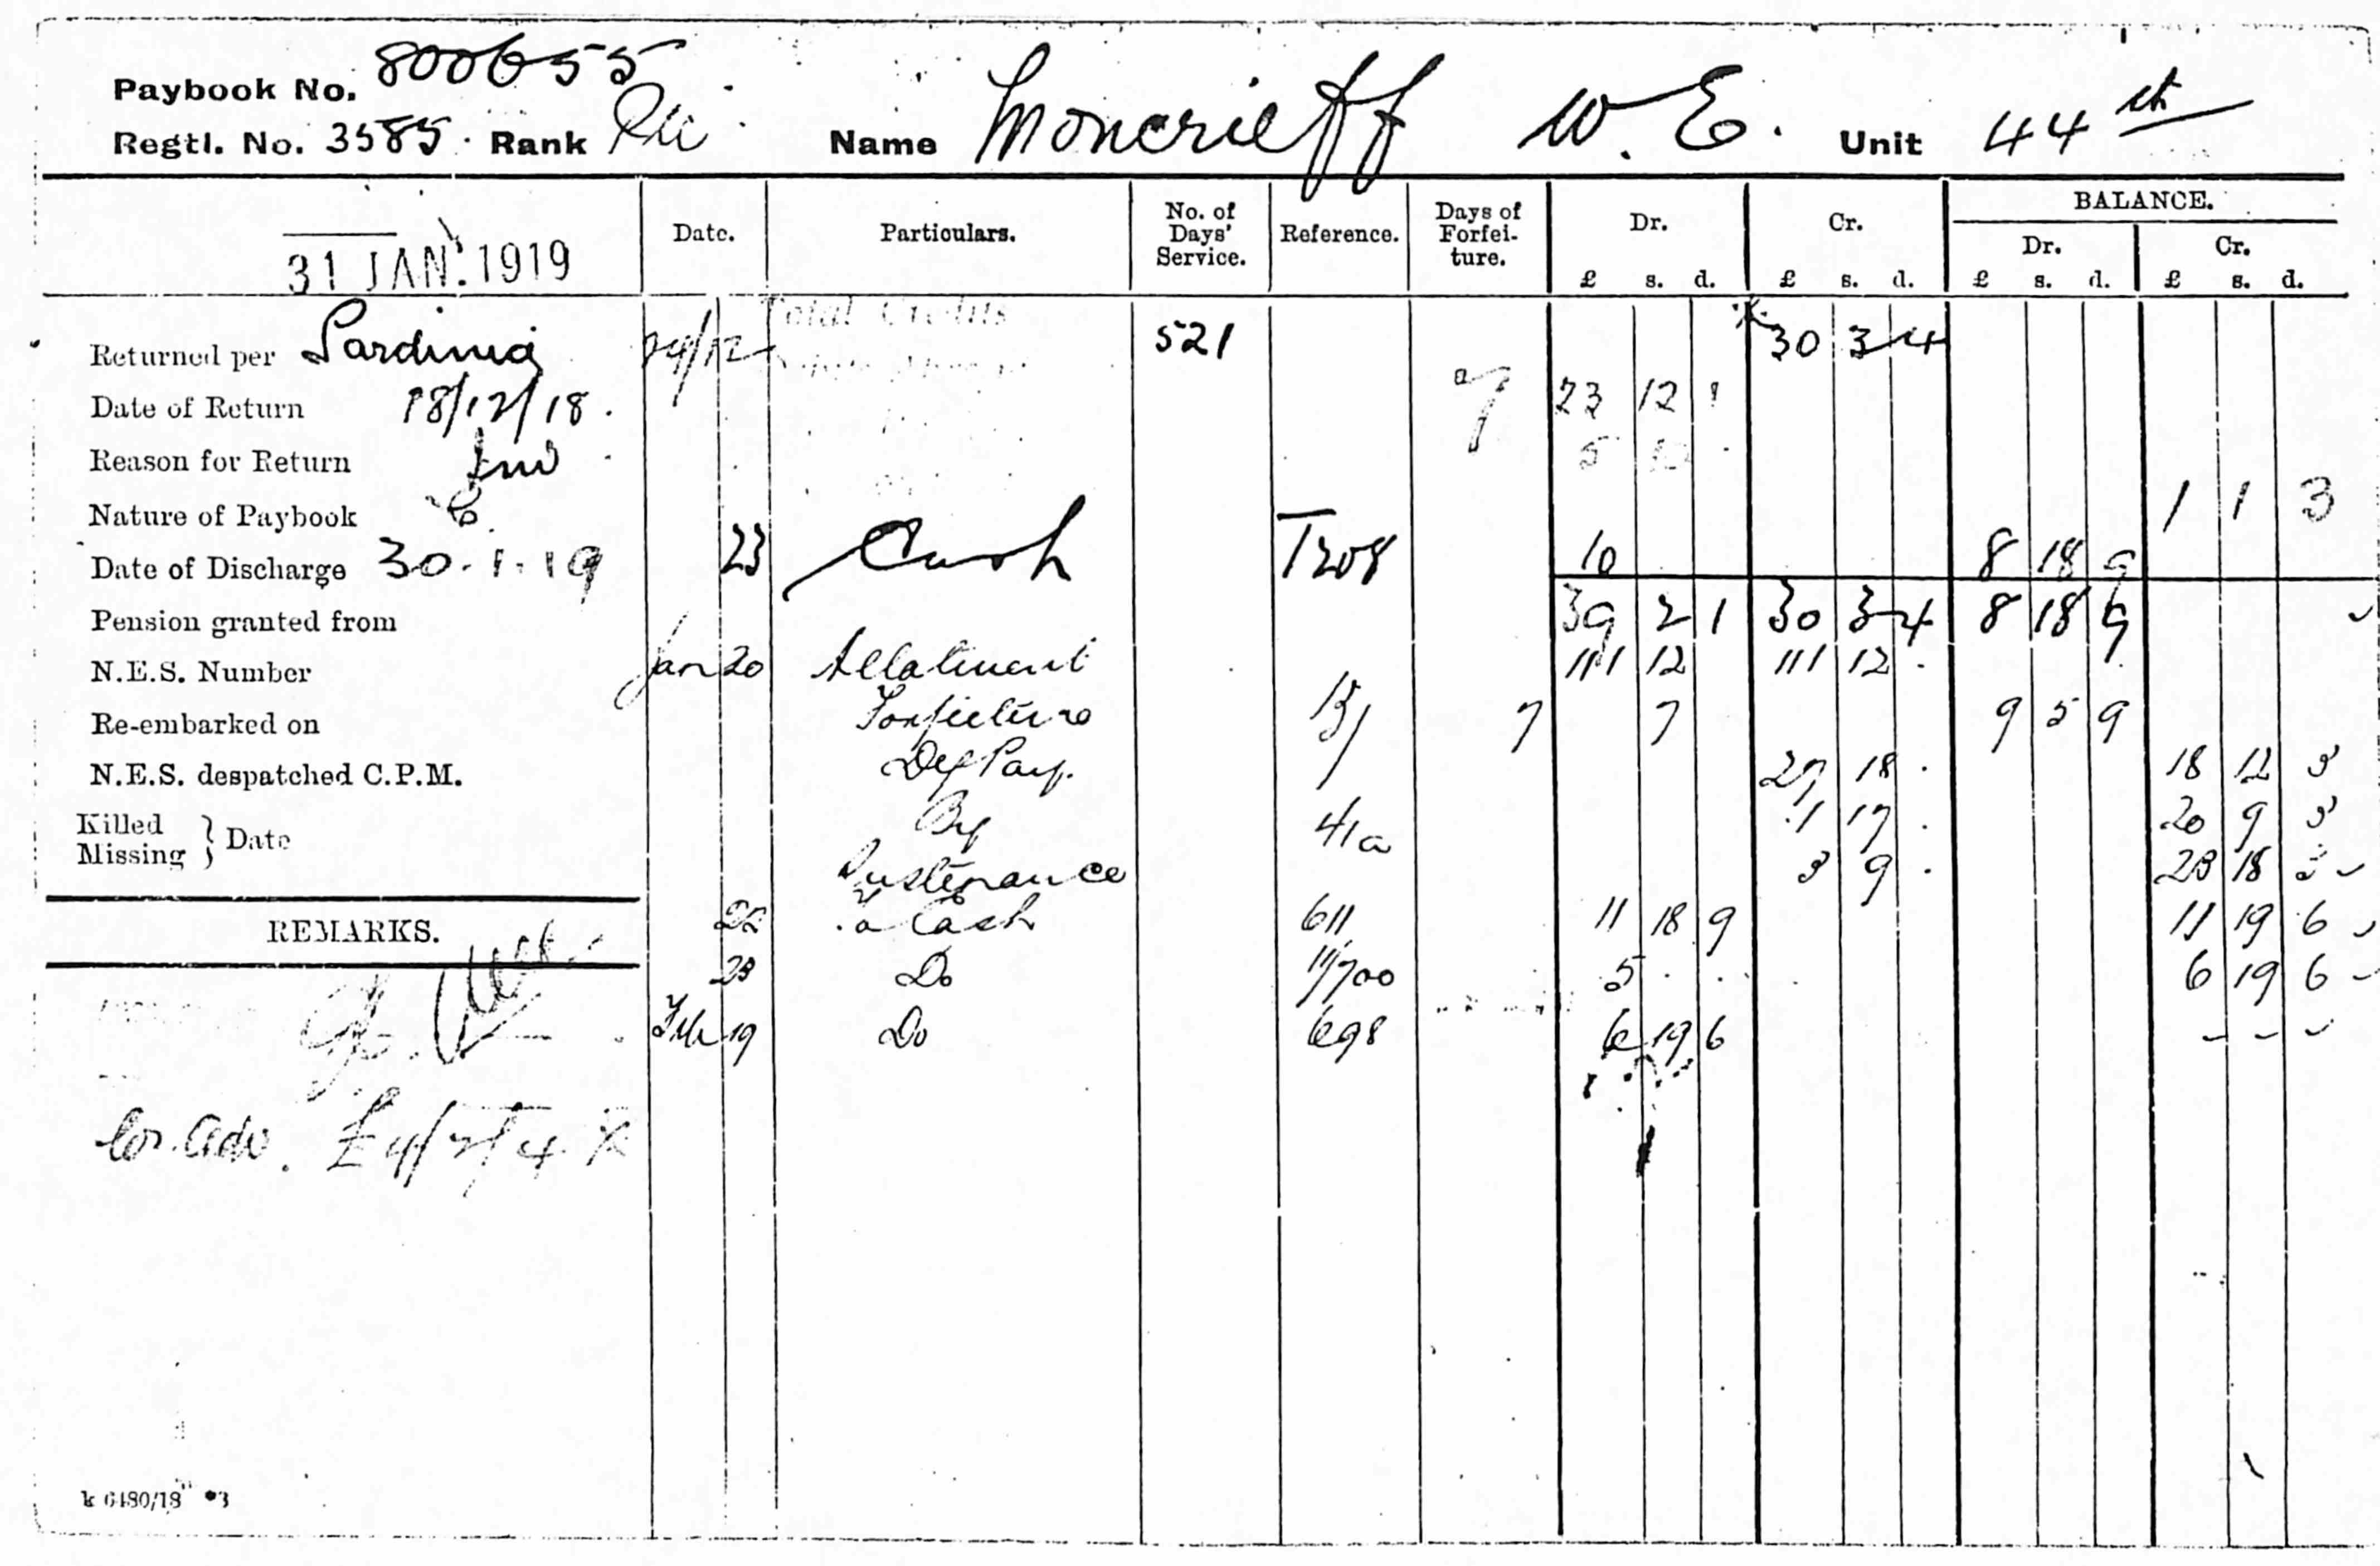 Paybook No. 800655
Regtl. No. 3585. Rank Pte Name Moncrieff W. E. Unit 44th
31 JAN. 1919
Date. Particulars. No. of Days' Service. Reference. Days of Forfei-ture. Dr. £ s. d. Cr. £ s. d. BALANCE. Dr. £ s. d. Cr. £ s. d.
Returned per Sardinia 24/12 Total Credits 521 30 3 4
Date of Return 18/12/18. 7 23 12 1
Reason for Return Inv 5
Nature of Paybook 1 1 3
Date of Discharge 30.1.19 23 Cash T208 10 8 18 9
Pension granted from 39 2 1 30 3 4 8 18 9
N.E.S. Number Jan 20 Allotment 111 12 111 12
Re-embarked on Forfeiture B/ 7 7 9 5 9
N.E.S. despatched C.P.M. Def Pay. 27 18 . 18 12 3
Killed Missing } Date By 41a 1 17 . 20 9 3
Sustenance 3 9 . 23 18 3
REMARKS. 22 To Cash 611 11 18 9 11 19 6
23 Do 11/700 5 . . 6 19 6
Feb 19 Do 698 6 19 6 - - -
Cr. Adv. £4/2/4 X
k 6480/18 3